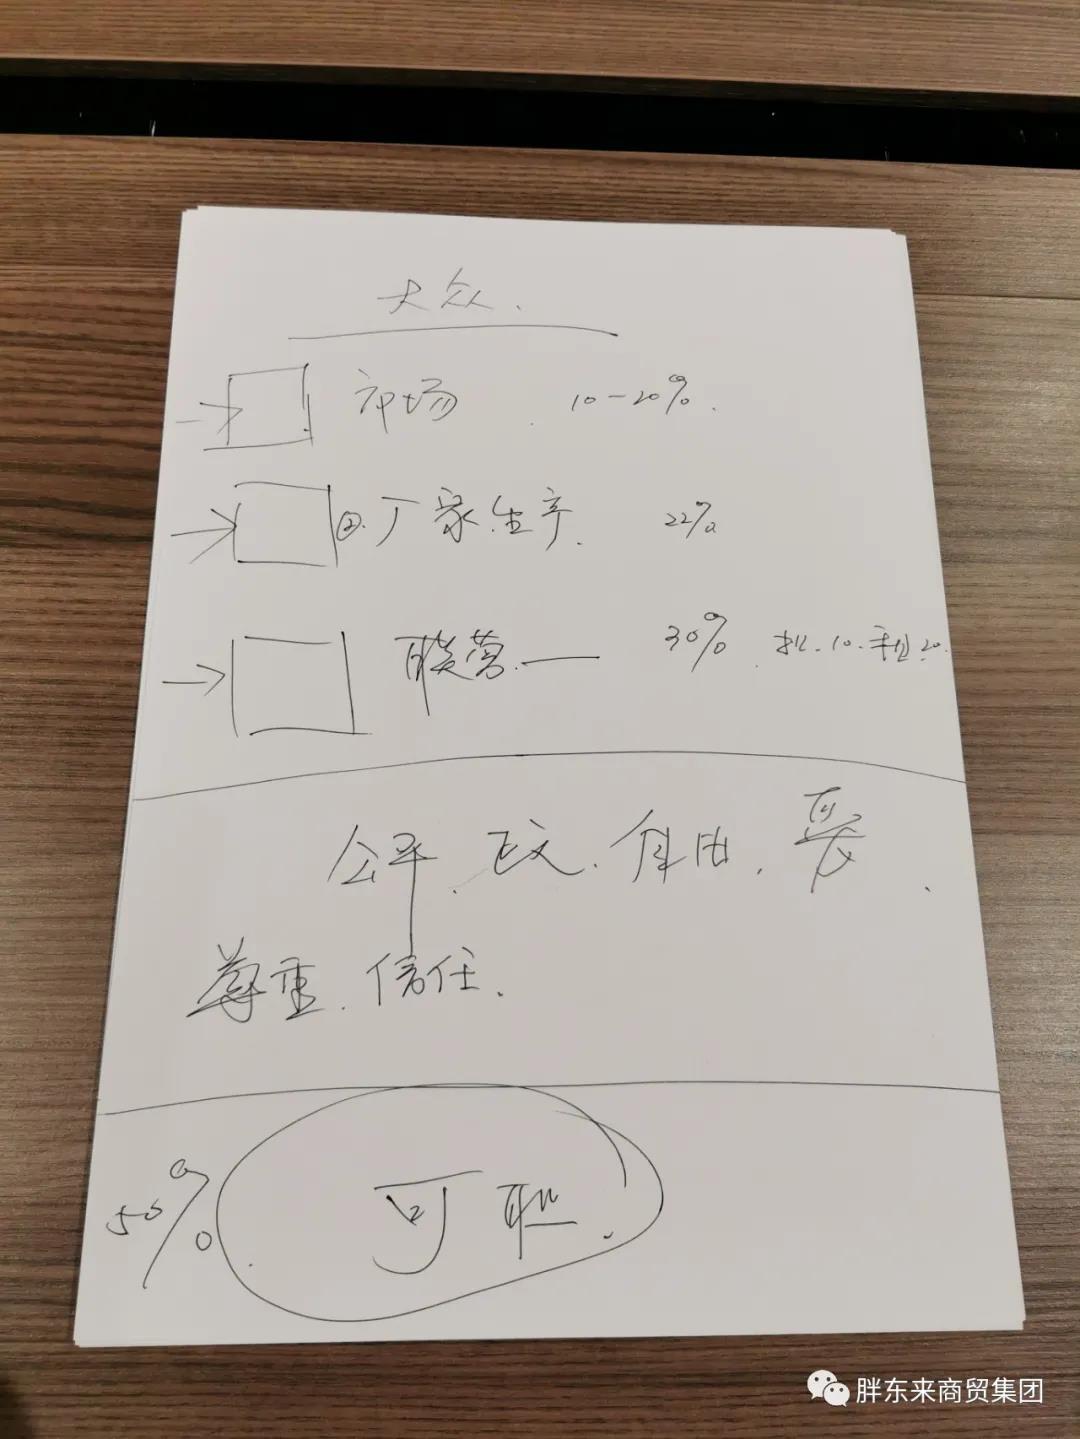 大众.
市场 10-20%.
②.厂家生产. 22%
联营.— 30%. 批.10.租20.
公平.正义.自由.爱.
尊重.信任.
50% 可耻.
胖东来商贸集团